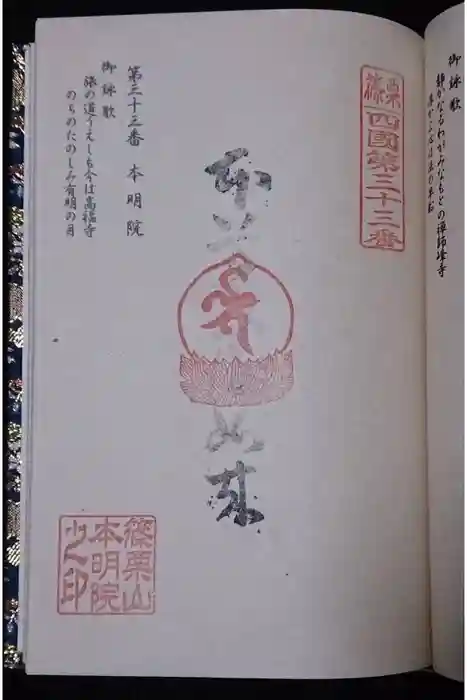 御詠歌
静かなるわがみなもとの禅師峰寺
浮かぶ心は法の早船
篠栗
四國第三十三番
本
如来
第三十三番 本明院
御詠歌
旅の道うえしも今は高福寺
のちのたのしみ有明の月
篠栗山
本明院
之印